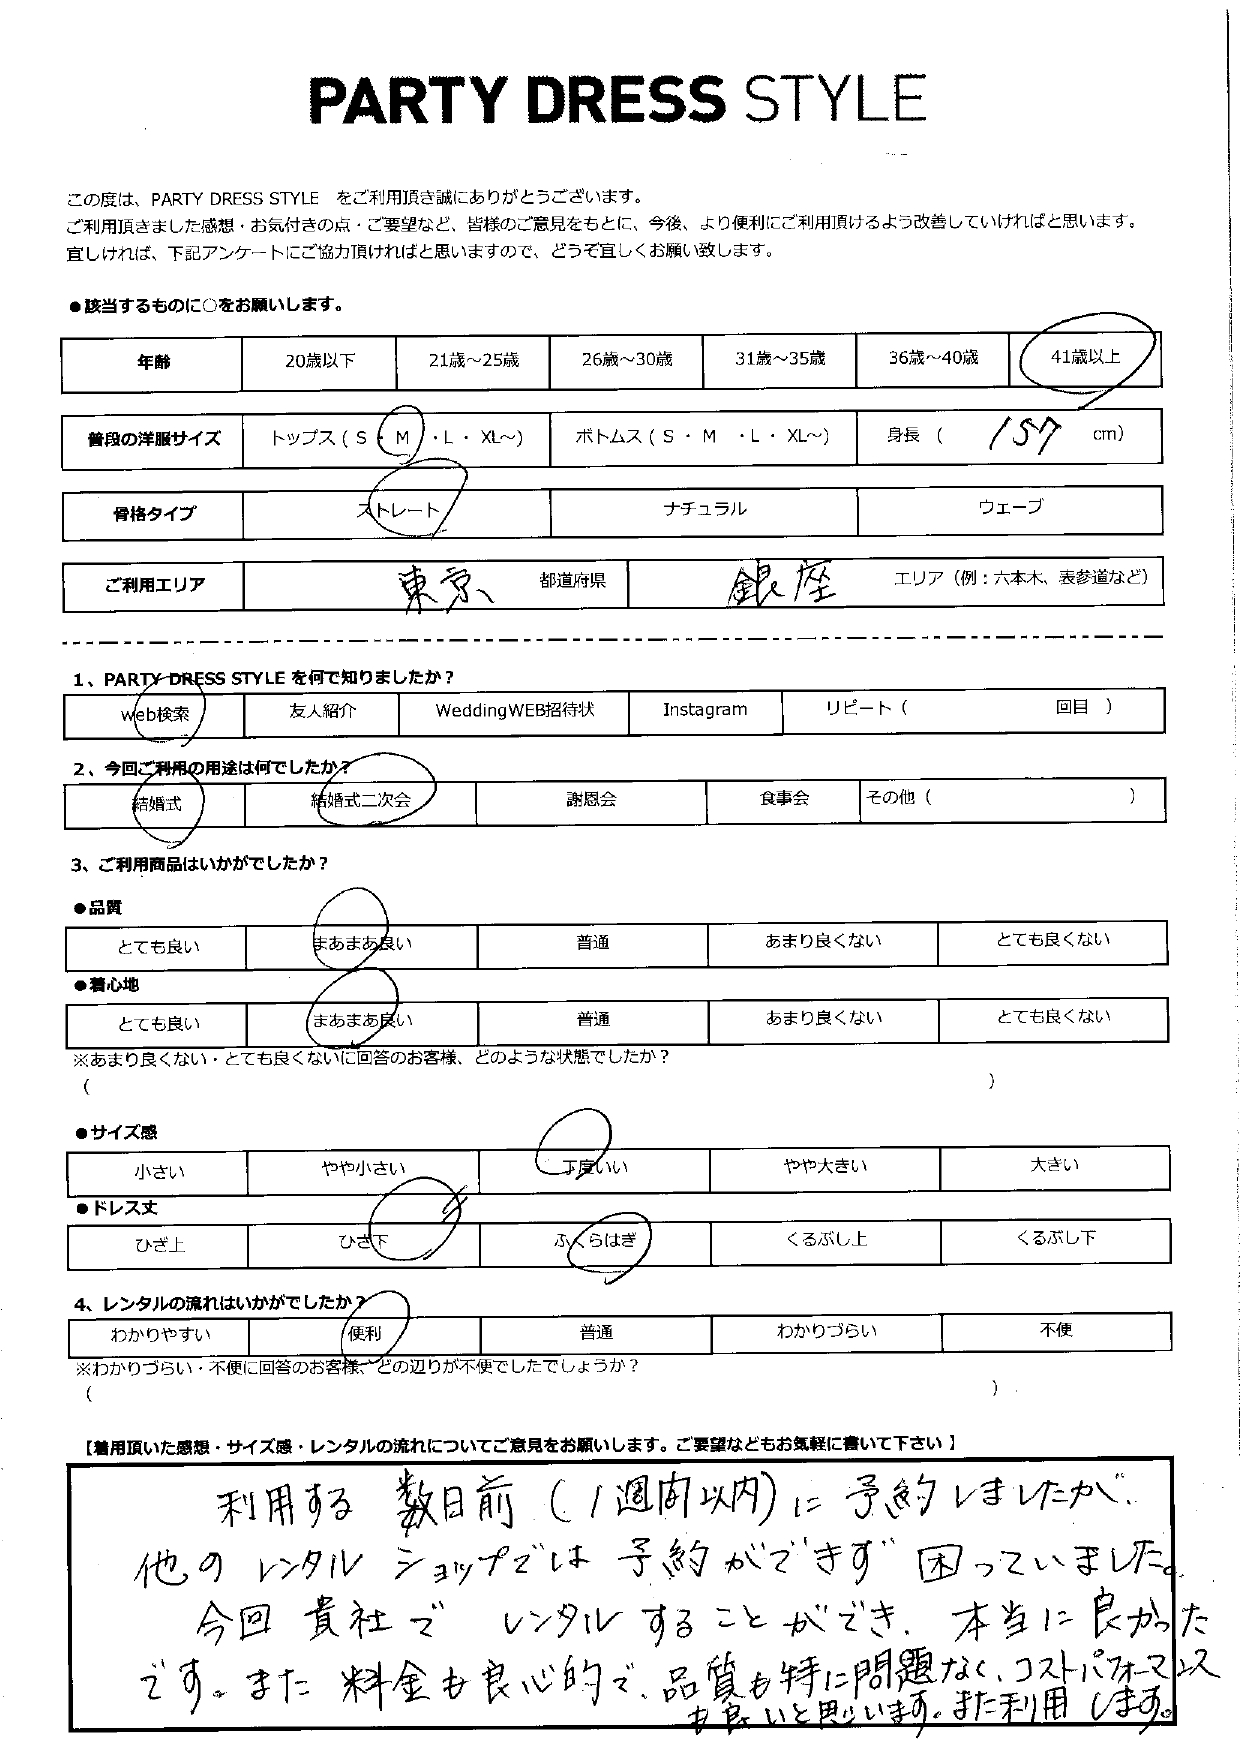 PARTY DRESS STYLE
この度は、PARTY DRESS STYLE をご利用頂き誠にありがとうございます。
ご利用頂きました感想・お気付きの点・ご要望など、皆様のご意見をもとに、今後、より便利にご利用頂けるよう改善していければと思います。
宜しければ、下記アンケートにご協力頂ければと思いますので、どうぞ宜しくお願い致します。
●該当するものに○をお願いします。
年齢 20歳以下 21歳～25歳 26歳～30歳 31歳～35歳 36歳～40歳 41歳以上
普段の洋服サイズ トップス（ S ・ M ・L ・ XL～） ボトムス（ S ・ M ・L ・ XL～） 身長 （ 157 cm）
骨格タイプ ストレート ナチュラル ウェーブ
ご利用エリア 東京 都道府県 銀座 エリア（例：六本木、表参道など）
1、PARTY DRESS STYLE を何で知りましたか？
web検索 友人紹介 WeddingWEB招待状 Instagram リピート（ 回目 ）
2、今回ご利用の用途は何でしたか？
結婚式 結婚式二次会 謝恩会 食事会 その他（ ）
3、ご利用商品はいかがでしたか？
●品質
とても良い まあまあ良い 普通 あまり良くない とても良くない
●着心地
とても良い まあまあ良い 普通 あまり良くない とても良くない
※あまり良くない・とても良くないに回答のお客様、どのような状態でしたか？
（ ）
●サイズ感
小さい やや小さい 丁度いい やや大きい 大きい
●ドレス丈
ひざ上 ひざ下 ふくらはぎ くるぶし上 くるぶし下
4、レンタルの流れはいかがでしたか？
わかりやすい 便利 普通 わかりづらい 不便
※わかりづらい・不便に回答のお客様、どの辺りが不便でしたでしょうか？
（ ）
【着用頂いた感想・サイズ感・レンタルの流れについてご意見をお願いします。ご要望などもお気軽に書いて下さい 】
利用する 数日前（1週間以内）に 予約しましたが、
他の レンタル ショップでは 予約ができず 困っていました。
今回 貴社で レンタルすることができ、本当に良かった
です。また 料金も良心的で、品質も特に問題なく、コストパフォーマンス
も良いと思います。また利用します。